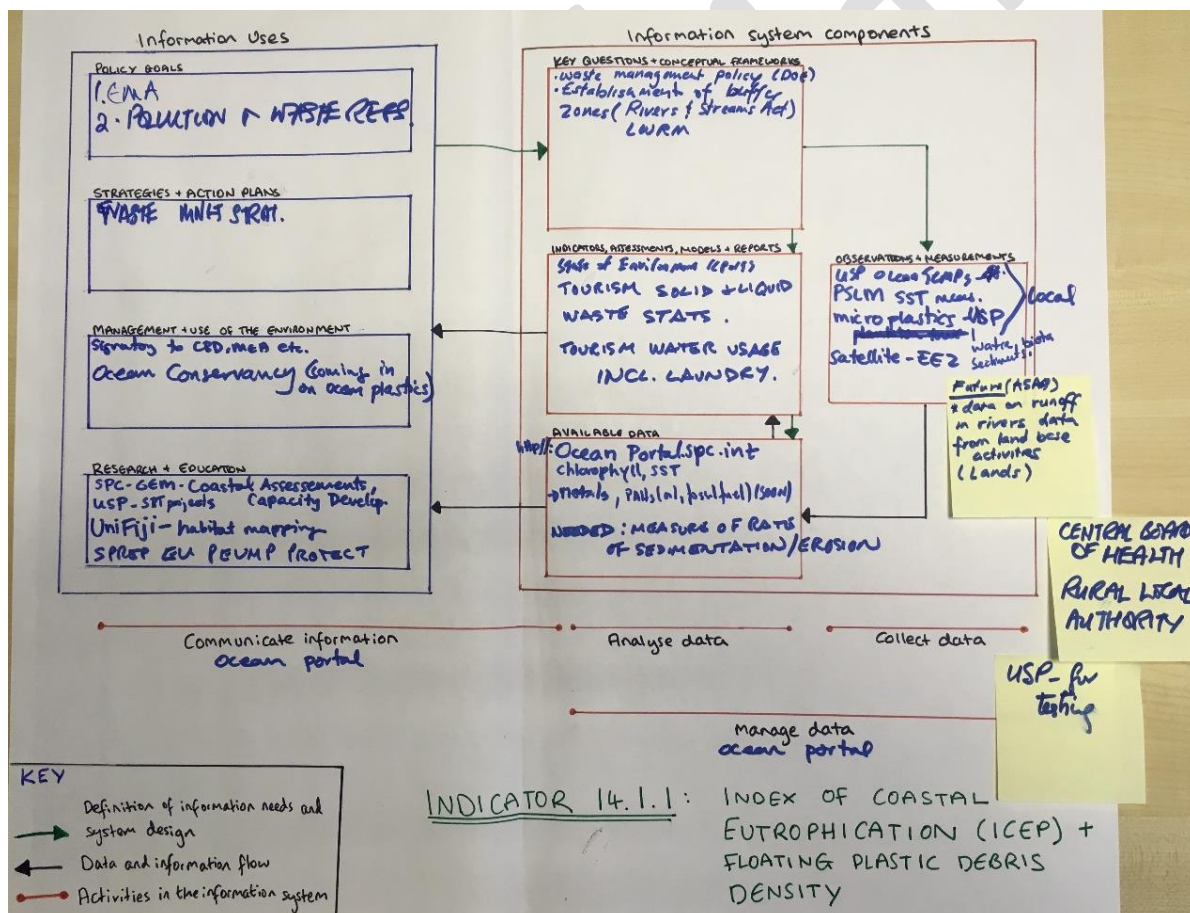 Information Uses
POLICY GOALS
1. EMA
2. POLLUTION & WASTE REGS
STRATEGIES + ACTION PLANS
WASTE MNGT STRAT.
MANAGEMENT + USE OF THE ENVIRONMENT
Signatory to CBD, MEA etc.
Ocean Conservancy (coming in
on ocean plastics)
RESEARCH + EDUCATION
SPC-GEM-Coastal Assessements,
USP-SRT projects Capacity Develop.
UniFiji - habitat mapping
SPREP EU PEUMP PROTECT
Information system components
KEY QUESTIONS + CONCEPTUAL FRAMEWORKS
• waste management policy (DoE)
• Establishment of buffer
zones (Rivers & Streams Act)
LWRM
INDICATORS, ASSESSMENTS, MODELS + REPORTS
State of Environment (Report)
TOURISM SOLID + LIQUID
WASTE STATS.
TOURISM WATER USAGE
INCL. LAUNDRY.
AVAILABLE DATA
http//: Ocean Portal.spc.int
chlorophyll, SST
→ metals, PAHs (oil, fossil fuel) (SOON)
NEEDED: MEASURE OF RATE
OF SEDIMENTATION/EROSION
OBSERVATIONS + MEASUREMENTS
USP Ocean
PSLM SST meas.
microplastics - USP
Local
water, biota
sediments.
Satellite - EEZ
Future (ASAP)
* data on runoff
in rivers data
from land base
activities
(Lands)
CENTRAL BOARD
OF HEALTH
RURAL LOCAL
AUTHORITY
USP- for
testing
Communicate information
ocean portal
Analyse data
Collect data
manage data
ocean portal
KEY
Definition of information needs and
system design
Data and information flow
Activities in the information system
INDICATOR 14.1.1: INDEX OF COASTAL
EUTROPHICATION (ICEP) +
FLOATING PLASTIC DEBRIS
DENSITY